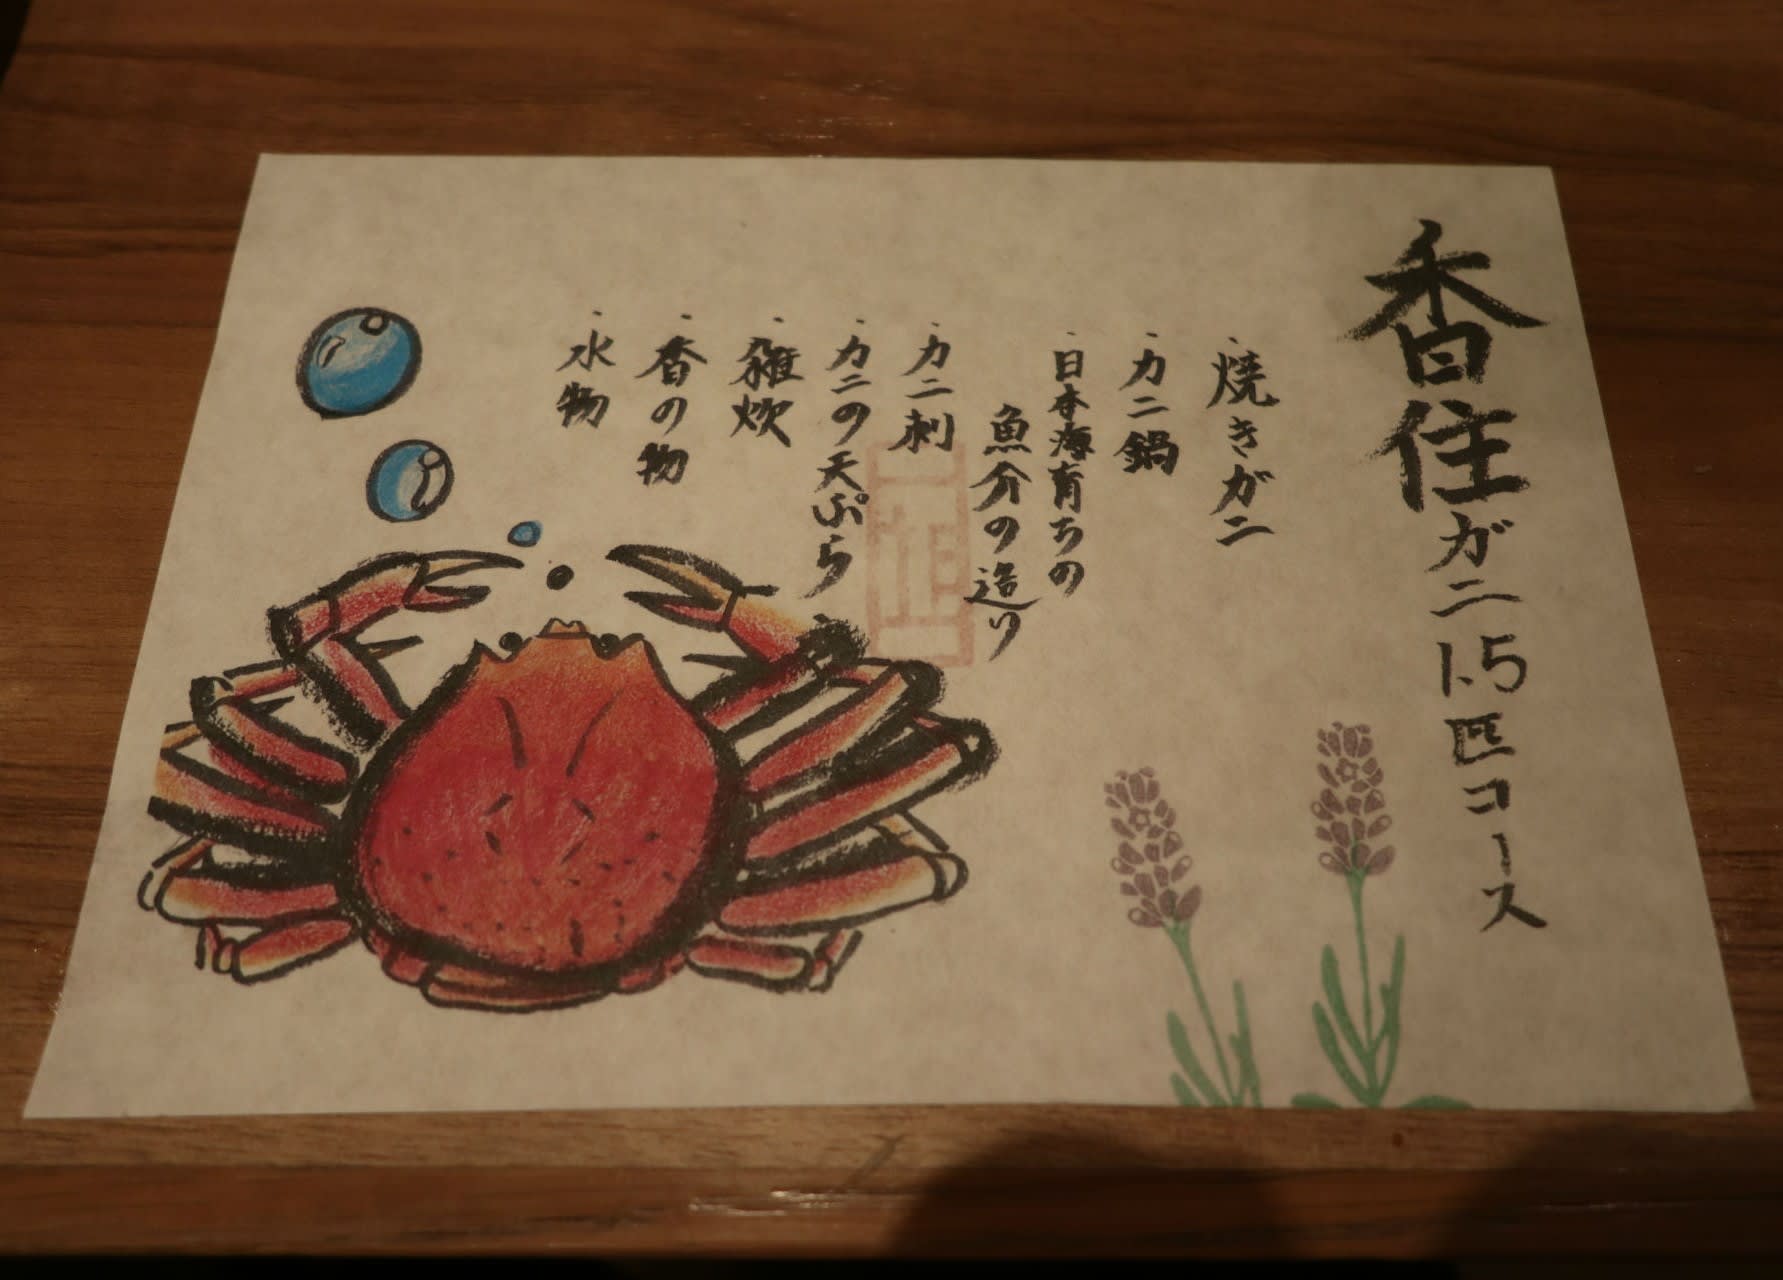 香住ガニ1.5匹コース
・焼きガニ
・カニ鍋
・日本海育ちの
魚介の造り
・カニ刺
・カニの天ぷら
・雑炊
・香の物
・水物